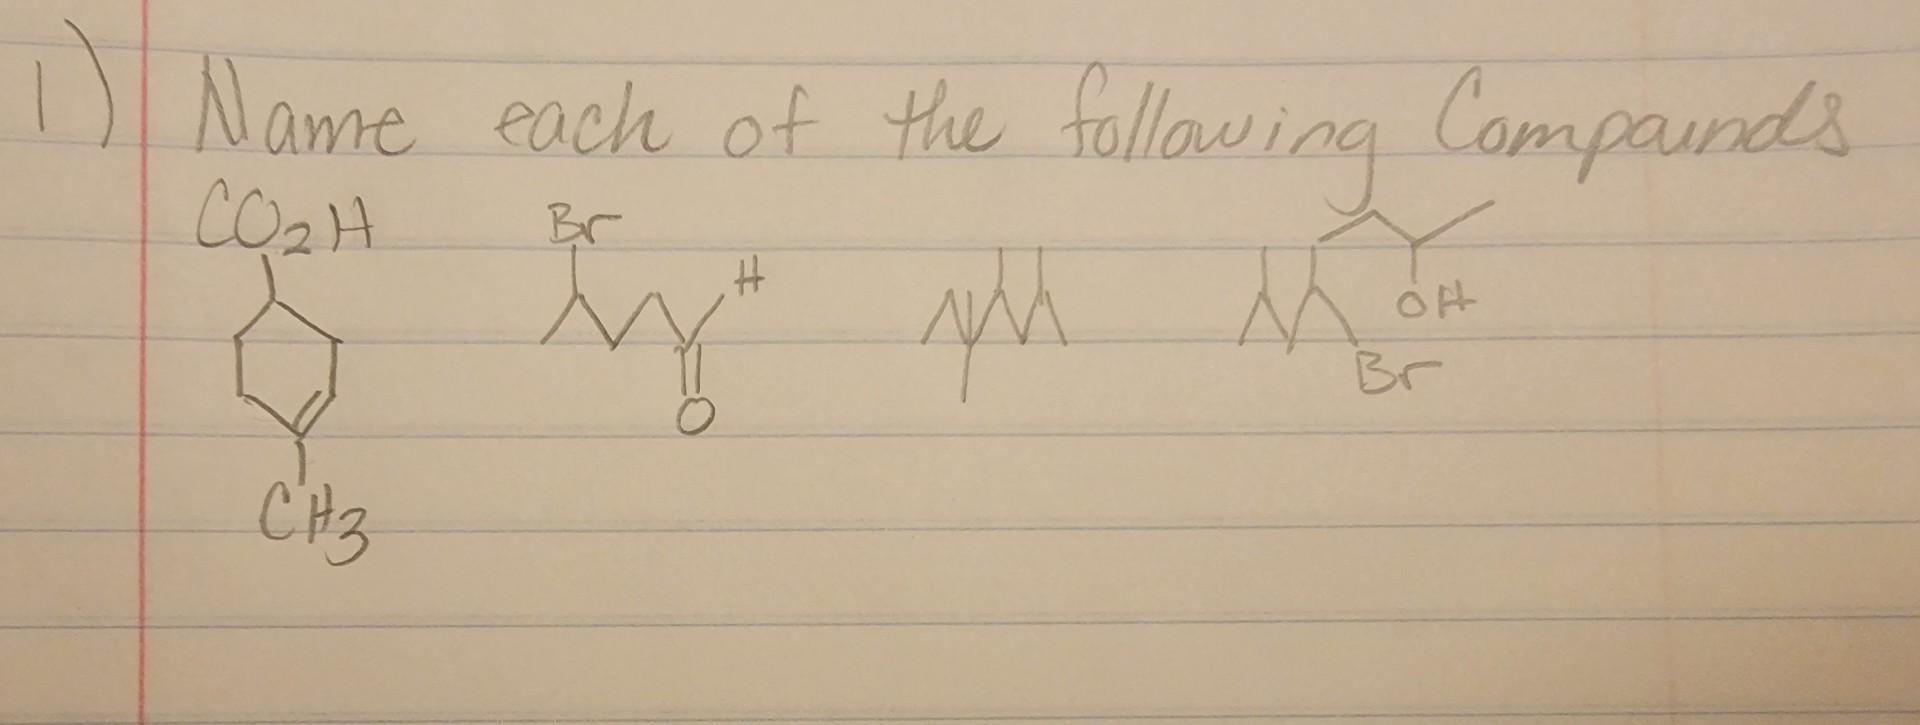 1) Name each of the following Compounds
CO2H Br H OH Br O
CH3